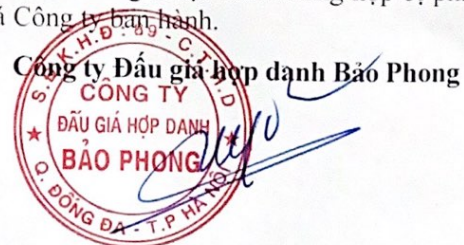 á Công ty ban hành.
Công ty Đấu giá hợp danh Bảo Phong
S.Đ.K.H.Đ: 89 - C.T.H.D
CÔNG TY
ĐẤU GIÁ HỢP DANH
BẢO PHONG
Q. ĐỐNG ĐA - T.P HÀ NỘI